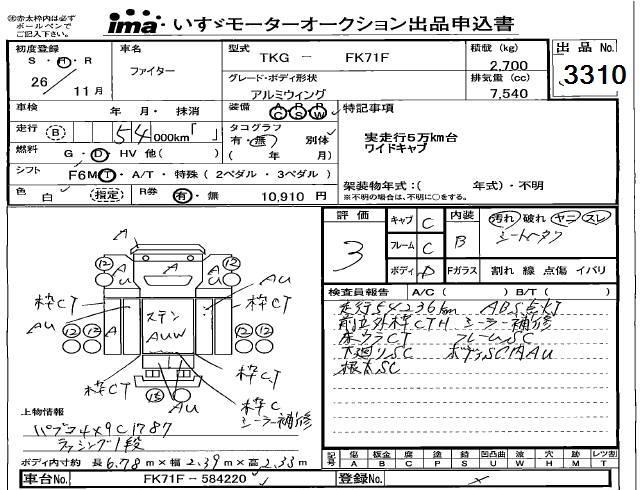 ㊟赤太枠内は必ず
ボールペンで
ご記入下さい。
ima いすゞモーターオークション出品申込書
初度登録 S・H・R 26 11月
車名 ファイター
型式 TKG - FK71F
積載 (kg) 2,700
出品 No. 3310
グレード・ボディ形状 アルミウイング
排気量 (cc) 7,540
車検 年 月・抹消
装備 AC PS PW
特記事項
走行 (B) 54 000km「 」
タコグラフ 有・無 別体 ( 年 月)
実走行5万km台
ワイドキャブ
燃料 G・D・HV 他( )
シフト F6MT・A/T・特殊(2ペダル・3ペダル)
架装物年式:( 年式)・不明
※不明の場合は、不明に○をする。
色 白 (指定) R券 有・無 10,910 円
評価 3
キャブ C
フレーム C
ボディ D
内装 B
汚れ 破れ ヤニ スレ
シート・タク
Fガラス 割れ 線 点傷 イバリ
検査員報告 A/C( ) B/T( )
走行54236km ABS点灯
前立外枠CTH シーラー補修
床ウラCT フレームSC
下廻りSC ボディSC内AU
根太SC
A
12 A A U A 12
枠CT AU 枠CT
AU A ステン AUW
12 12
枠CT 枠CT
15 AU 枠C
シーラー補修
上物情報
パブコ4x9C1787
ラッシング1段
ボディ内寸約 長 6.78 m×幅 2.39 m×高 2.33 m
記号 傷 A 鈑金 B 腐 C 塗 P 錆 S 凹凸曲 U 波 W 穴 H 跡 M レツ割 T
車台No. FK71F - 584220
登録No.